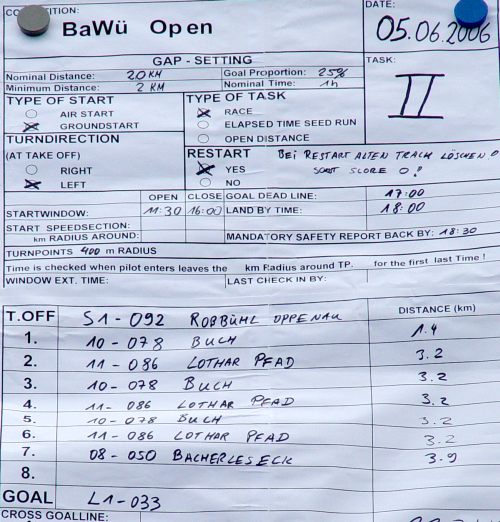 COMPETITION:
BaWü Open
DATE:
05.06.2006
GAP - SETTING
Nominal Distance: 20 KM
Goal Proportion: 25%
Minimum Distance: 2 KM
Nominal Time: 1h
TASK:
II
TYPE OF START
AIR START
GROUNDSTART
TYPE OF TASK
RACE
ELAPSED TIME SEED RUN
OPEN DISTANCE
TURNDIRECTION
(AT TAKE OFF)
RIGHT
LEFT
RESTART BEI RESTART ALTEN TRACK LÖSCHEN
YES SONST SCORE 0!
NO
OPEN CLOSE
STARTWINDOW: 11:30 16:00
GOAL DEAD LINE: 17:00
LAND BY TIME: 18:00
START SPEEDSECTION:
km RADIUS AROUND:
MANDATORY SAFETY REPORT BACK BY: 18:30
TURNPOINTS 400 m RADIUS
Time is checked when pilot enters leaves the km Radius around TP. for the first last Time !
WINDOW EXT. TIME: LAST CHECK IN BY:
DISTANCE (km)
T.OFF S1-092 ROßBÜHL OPPENAU
1. 10-078 BUCH 1.4
2. 11-086 LOTHAR PFAD 3.2
3. 10-078 BUCH 3.2
4. 11-086 LOTHAR PFAD 3.2
5. 10-078 BUCH 3.2
6. 11-086 LOTHAR PFAD 3.2
7. 08-050 BACHERLESECK 3.9
8.
GOAL L1-033
CROSS GOALLINE: